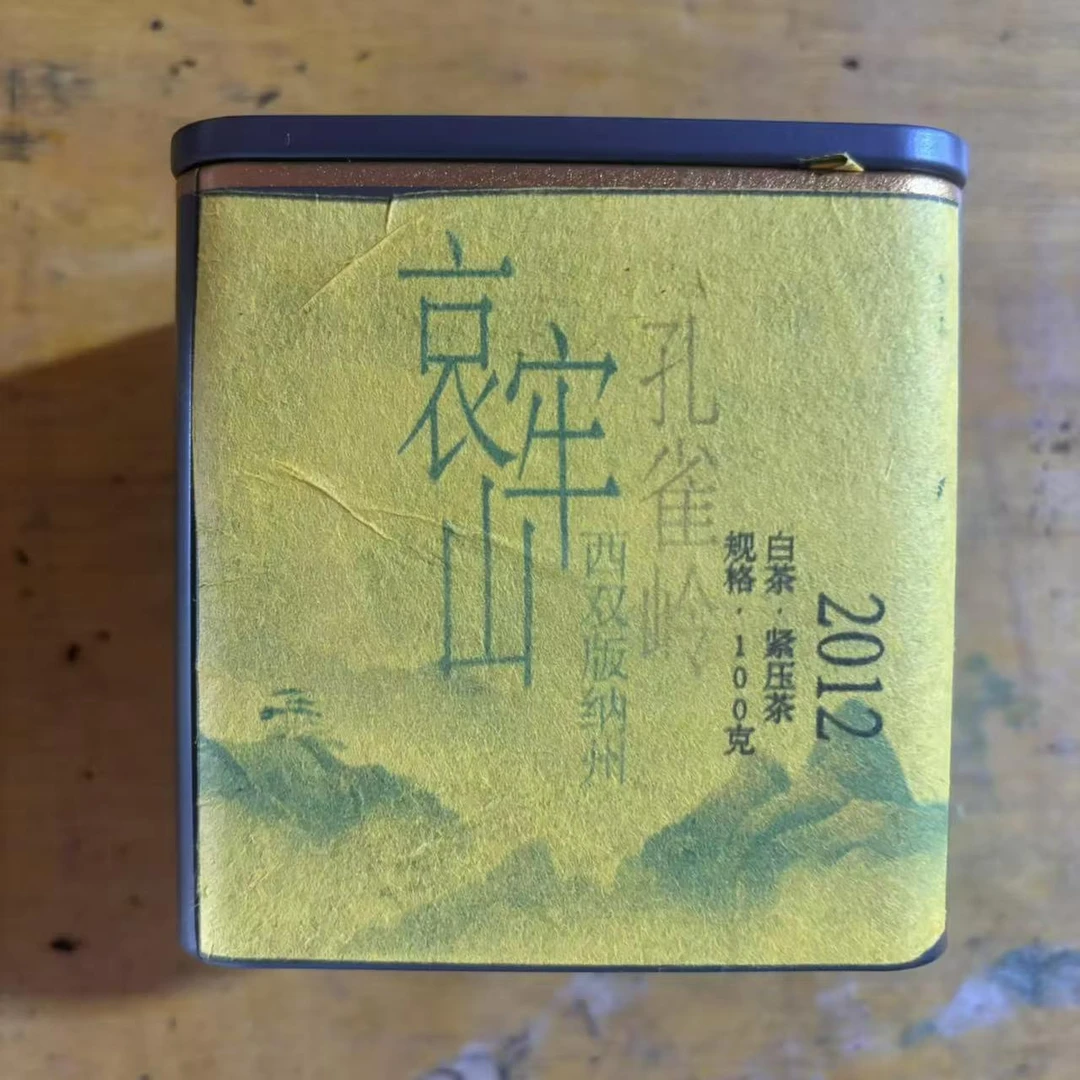 哀牢山
孔雀岭
西双版纳州
2012
白茶·紧压茶
规格·100克